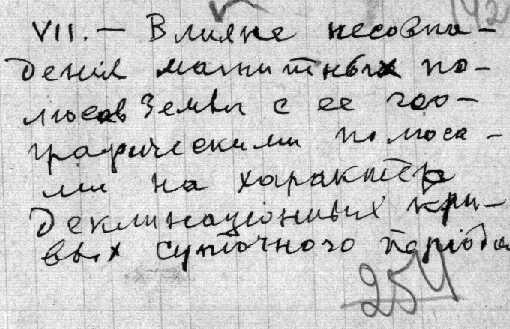 VII. — Влияние несовпа-
дения магнитных по-
люсов Земли с ее гео-
графическими полюса-
ми на характер
деклинационных кри-
вых суточного периода
254